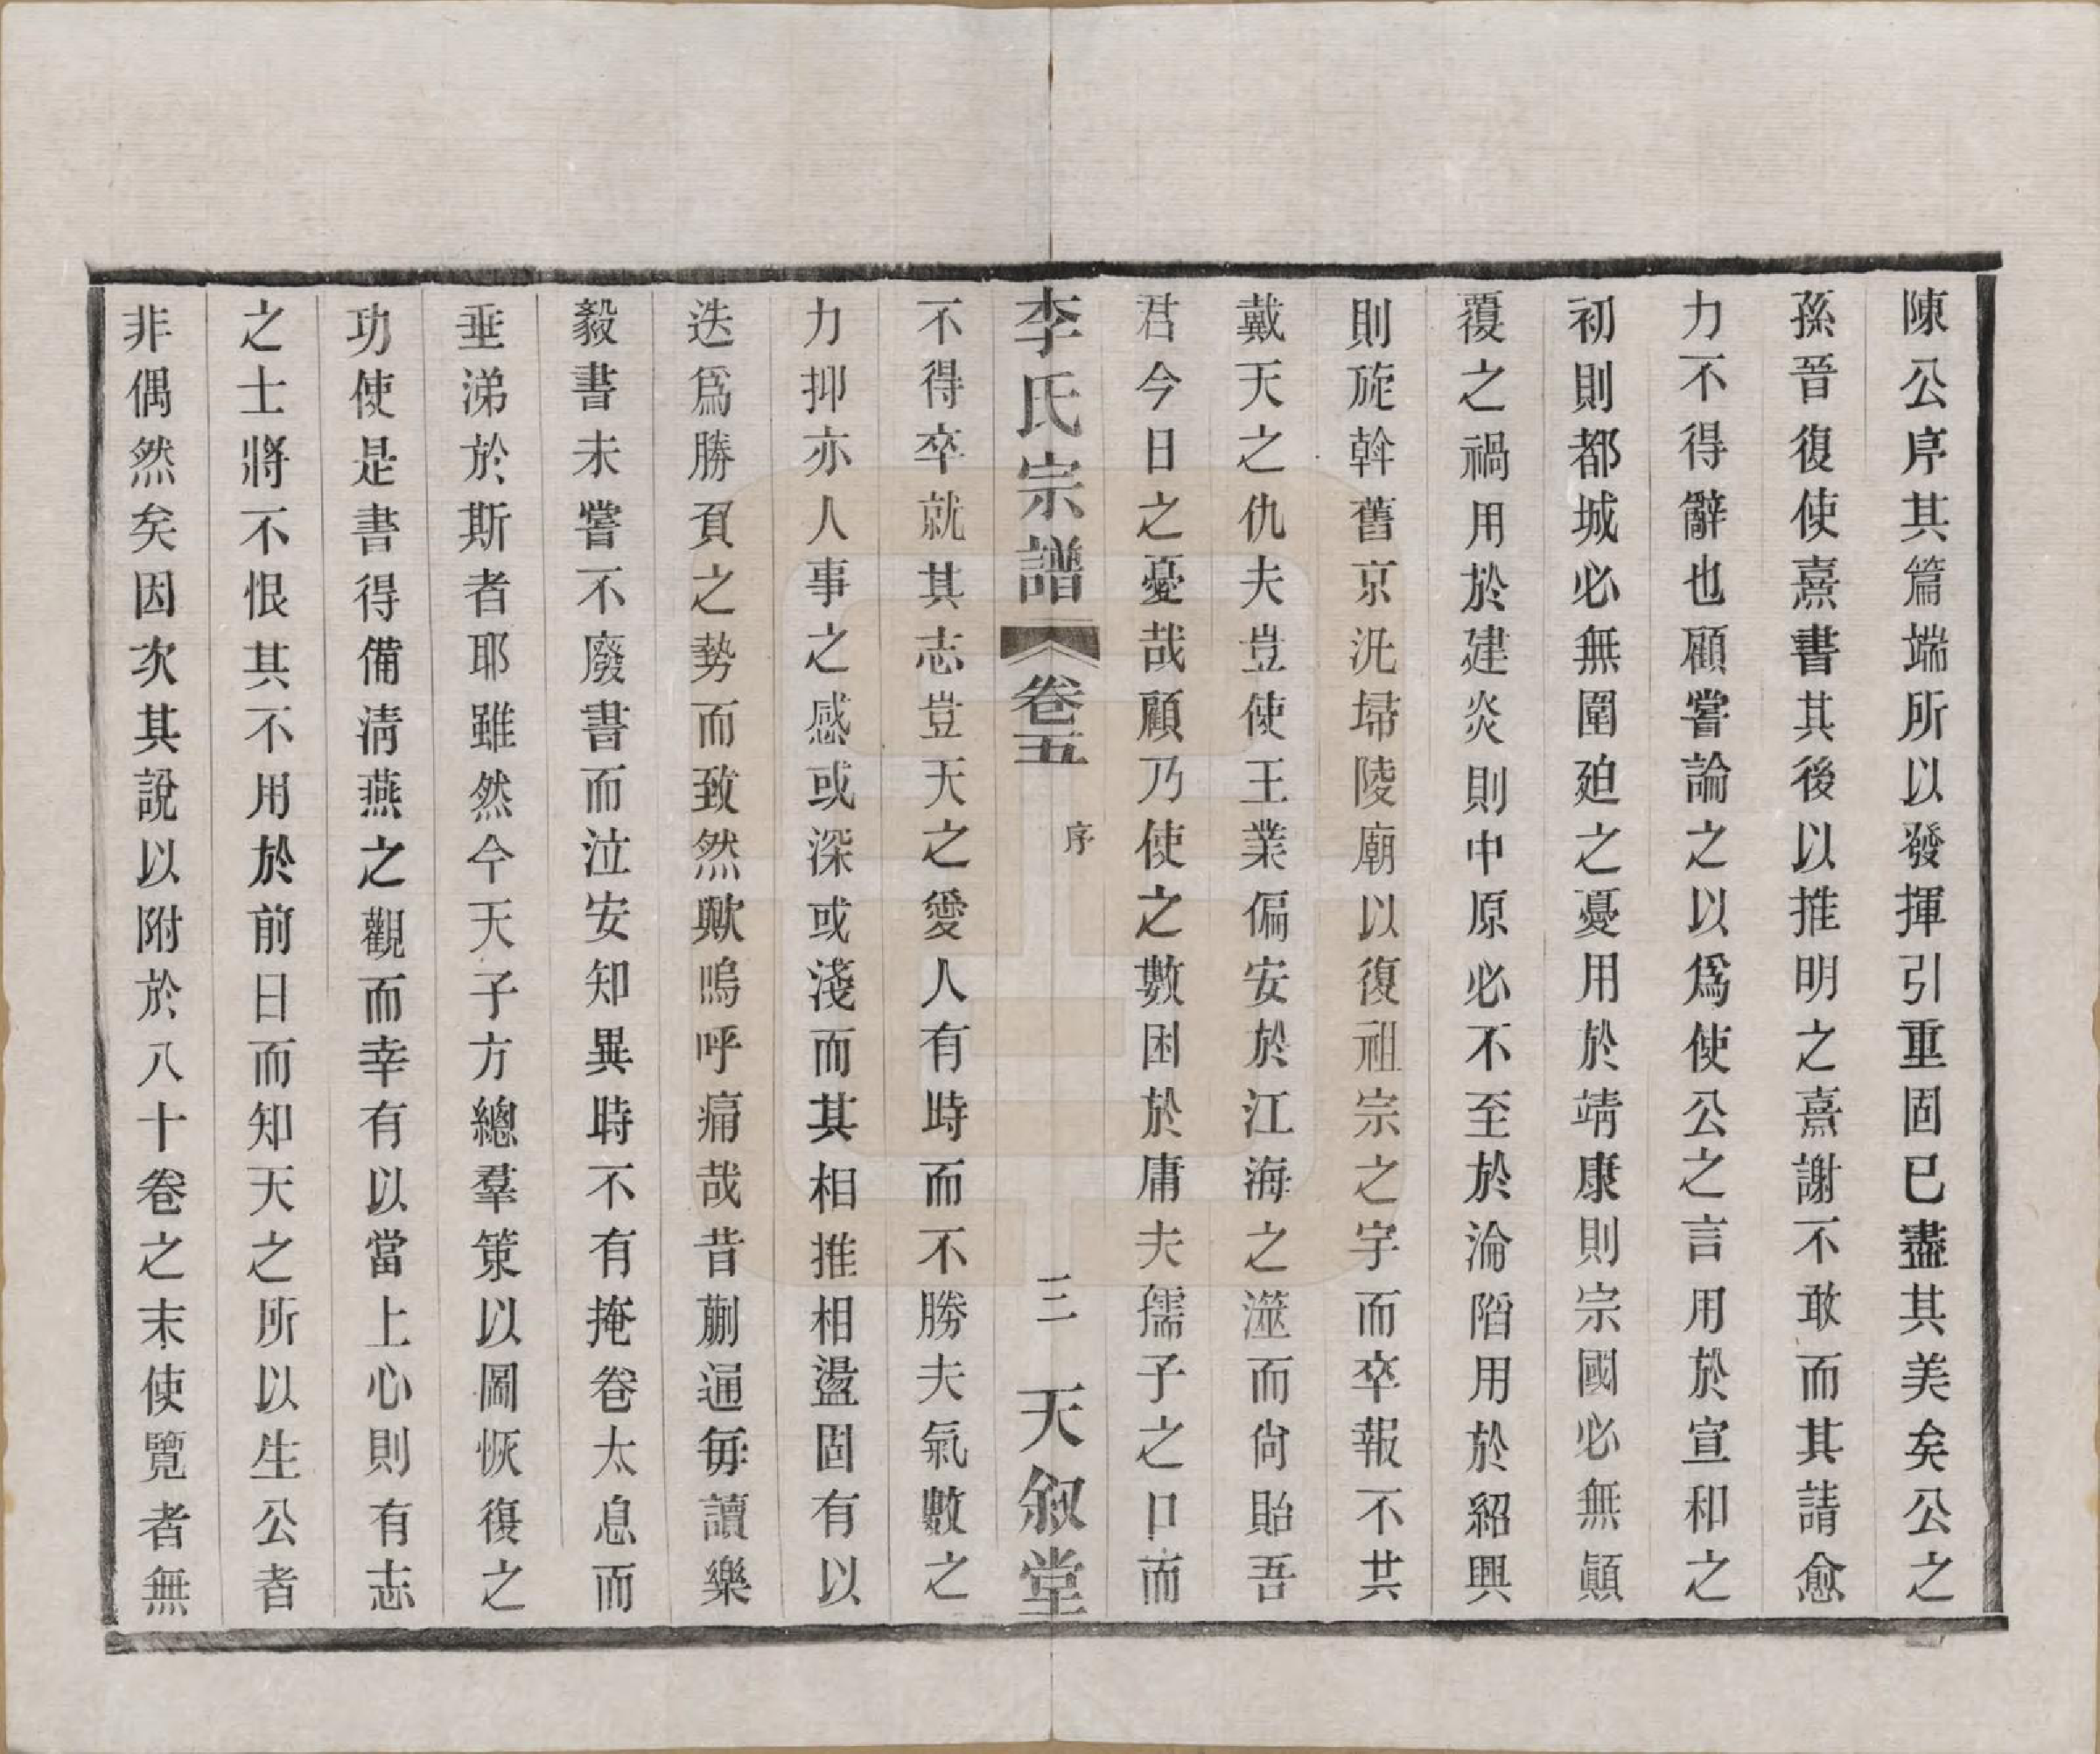 陳公序其篇端所以發揮引重固已盡其美矣公之
孫晉復使熹書其後以推明之熹謝不敢而其請愈
力不得辭也顧嘗論之以爲使公之言用於宣和之
初則都城必無圍廹之憂用於靖康則宗國必無顚
覆之禍用於建炎則中原必不至於淪陷用於紹興
則旋斡舊京汛埽陵廟以復祖宗之宇而卒報不共
戴天之仇夫豈使王業偏安於江海之澨而尙貽吾
君今日之憂哉顧乃使之數困於庸夫孺子之口而
李氏宗譜
卷五
序
三
天叙堂
不得卒就其志豈天之愛人有時而不勝夫氣數之
力抑亦人事之感或深或淺而其相推相盪固有以
迭爲勝負之勢而致然歟嗚呼痛哉昔蒯通毎讀樂
毅書未嘗不廢書而泣安知異時不有掩卷太息而
垂涕於斯者耶雖然今天子方總羣策以圖恢復之
功使是書得備淸燕之觀而幸有以當上心則有志
之士將不恨其不用於前日而知天之所以生公者
非偶然矣因次其說以附於八十卷之末使覽者無